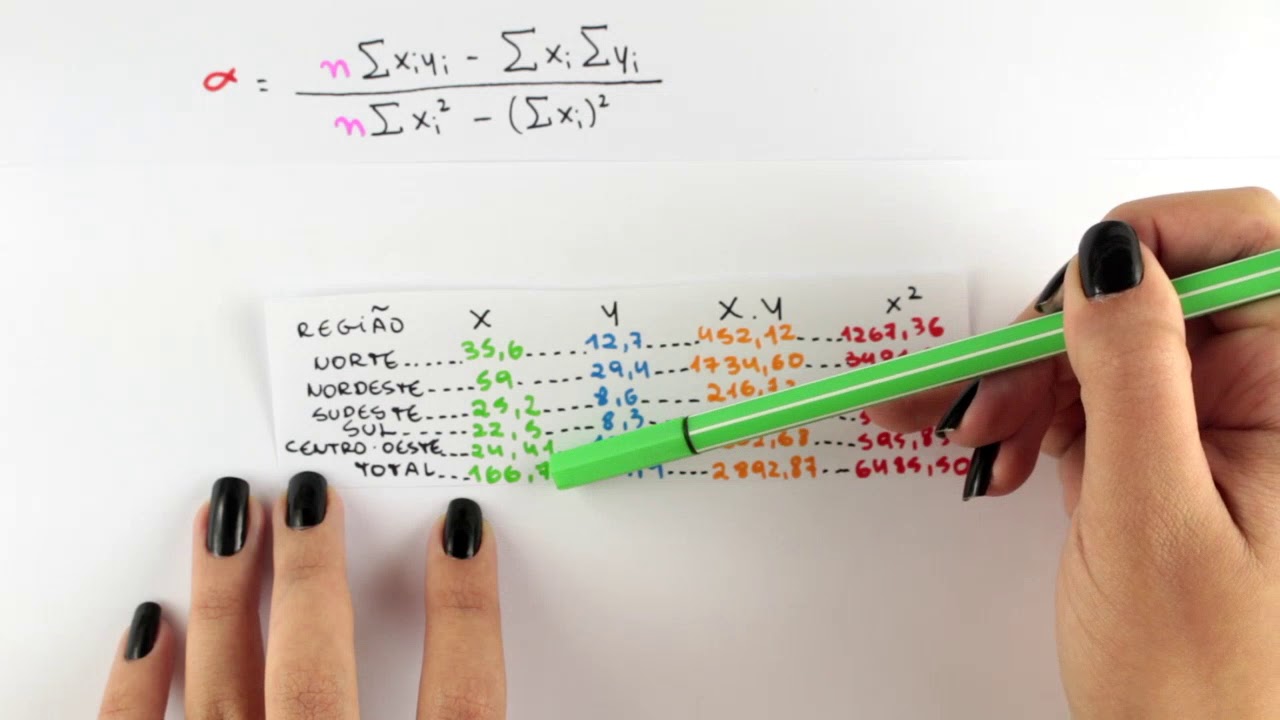 α = n Σxᵢyᵢ - Σxᵢ Σyᵢ
n Σxᵢ² - (Σxᵢ)²
REGIÃO X Y X.Y X²
NORTE.....35,6.....12,7.....452,12....1267,36
NORDESTE....59......29,4....1734,60...
SUDESTE....25,2....8,6....
SUL....22,5....8,3
CENTRO-OESTE....24,41
TOTAL...166,7 ...2892,87...6485,50